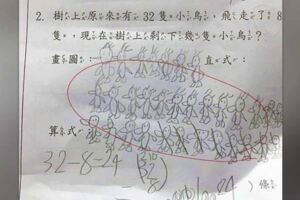 2. 樹上原來有 32 隻小鳥，飛走了 8
隻，現在樹上剩下幾隻小鳥？
畫圖： 直式：
算式：
32-8=24
32
8
24
條